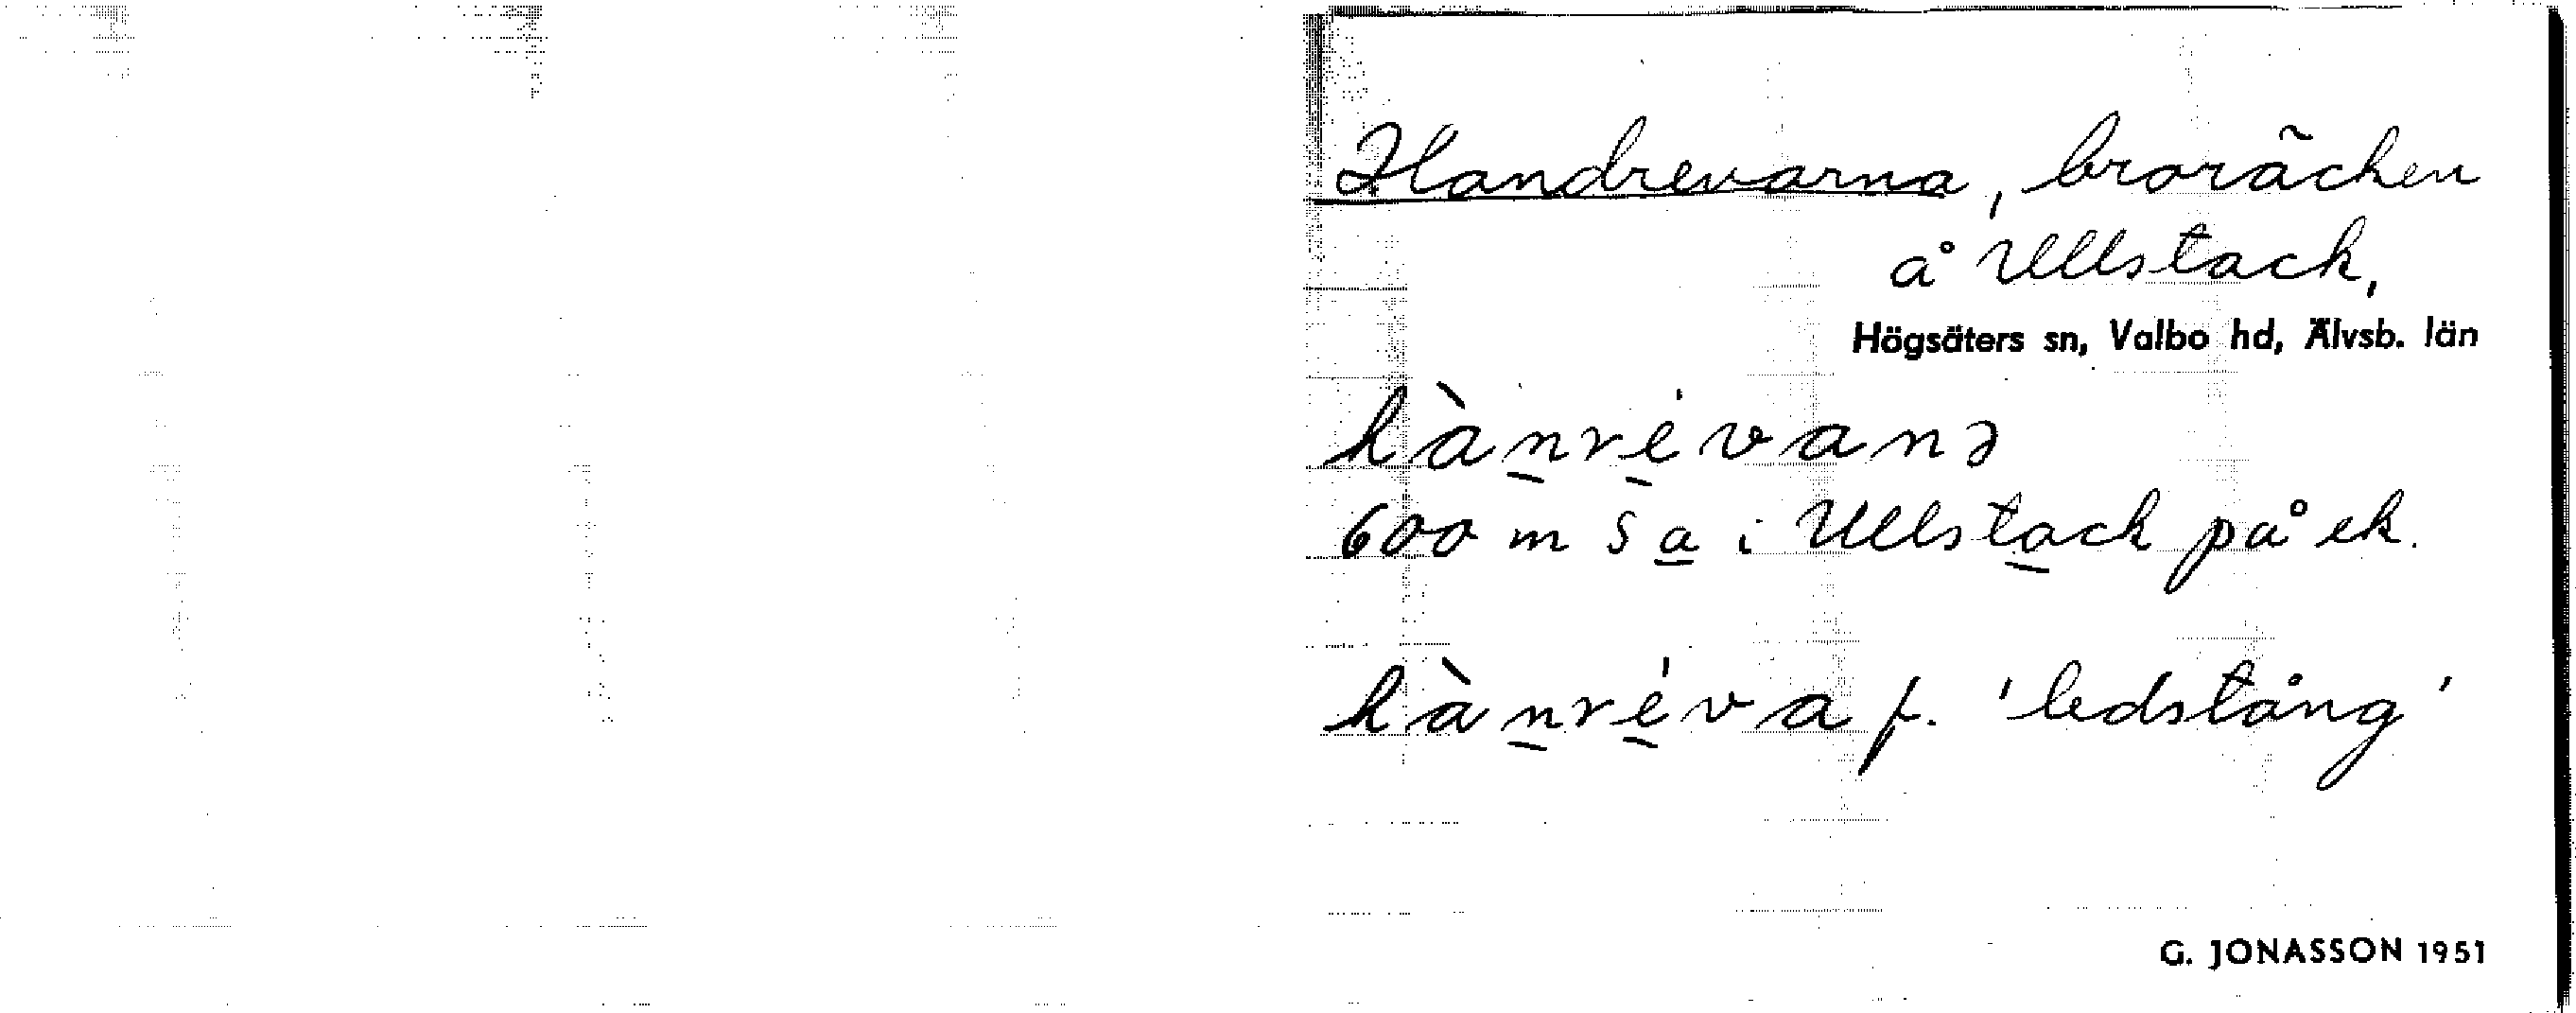 Handrevarna, broräcken
å Ullstack,
Högsäters sn, Valbo hd, Älvsb. län
hànrévanə
600 m S a i Ullstack på ek.
hànréva f. 'ledstång'
G. JONASSON 1951